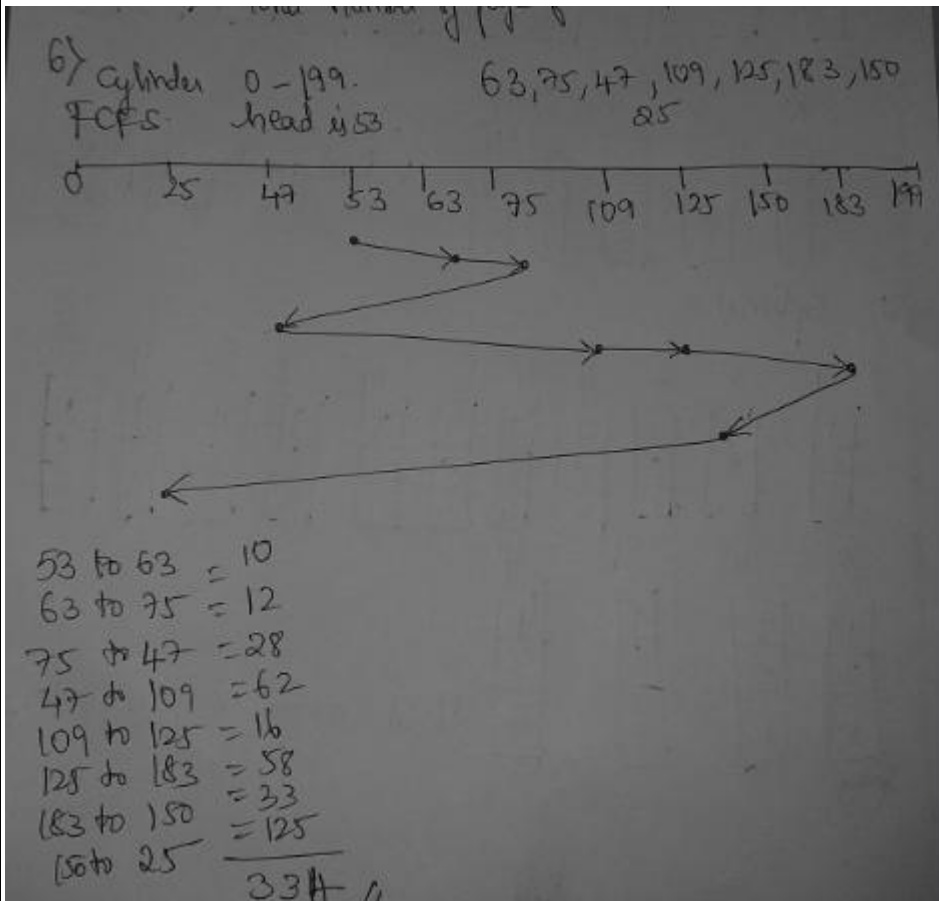 6) Cylinder 0-199. 63,75,47,109,125,183,150
FCFS head is 53 25
0 25 47 53 63 75 109 125 150 183 199
53 to 63 = 10
63 to 75 = 12
75 to 47 = 28
47 to 109 = 62
109 to 125 = 16
125 to 183 = 58
183 to 150 = 33
150 to 25 = 125
334